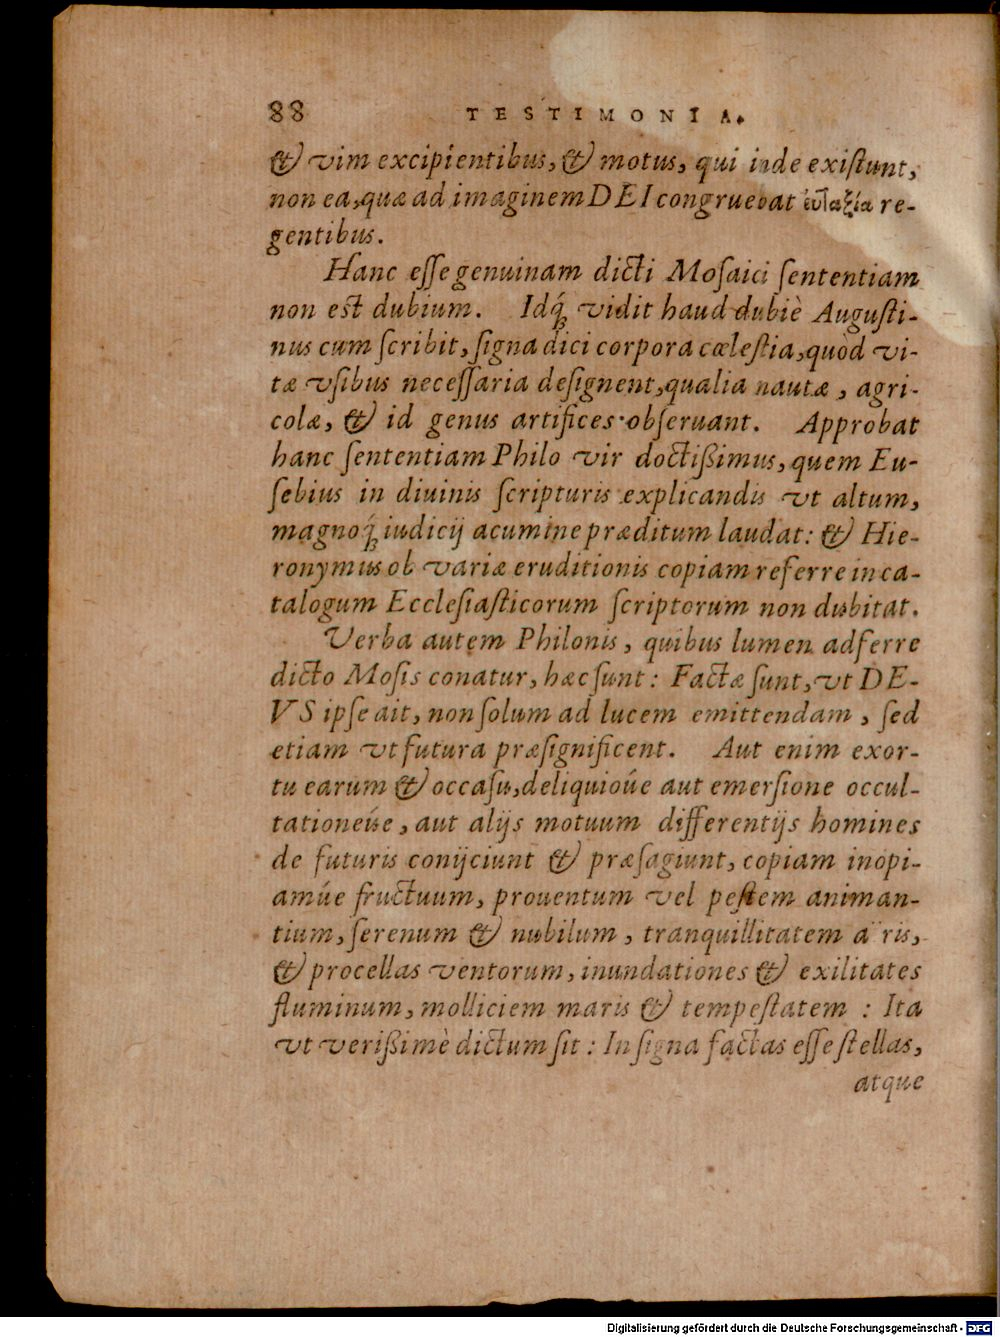 88 TESTIMONIA.
& vim excipientibus, & motus, qui inde exiſtunt,
non ea, quæ ad imaginem DEI congruebat ἐυταξία re-
gentibus.
Hanc eſſe genuinam dicti Moſaici ſententiam
non eſt dubium. Idq́ꝫ vidit haud dubiè Auguſti-
nus cum ſcribit, ſigna dici corpora cœleſtia, quòd vi-
tæ vſibus neceſſaria deſignent, qualia nautæ, agri-
colæ, & id genus artifices obſeruant. Approbat
hanc ſententiam Philo vir doctißimus, quem Eu-
ſebius in diuinis ſcripturis explicandis vt altum,
magnoq́ꝫ iudicij acumine præditum laudat: & Hie-
ronymus ob variæ eruditionis copiam referre in ca-
talogum Eccleſiaſticorum ſcriptorum non dubitat.
Verba autem Philonis, quibus lumen adferre
dicto Moſis conatur, hæc ſunt: Factæ ſunt, vt DE-
VS ipſe ait, non ſolum ad lucem emittendam, ſed
etiam vt futura præſignificent. Aut enim exor-
tu earum & occaſu, deliquioúe aut emerſione occul-
tationeúe, aut alijs motuum differentijs homines
de futuris conijciunt & præſagiunt, copiam inopi-
amúe fructuum, prouentum vel peſtem animan-
tium, ſerenum & nubilum, tranquillitatem aëris,
& procellas ventorum, inundationes & exilitates
fluminum, molliciem maris & tempeſtatem: Ita
vt verißimè dictum ſit: In ſigna factas eſſe ſtellas,
atque
Digitalisierung gefördert durch die Deutsche Forschungsgemeinschaft - DFG